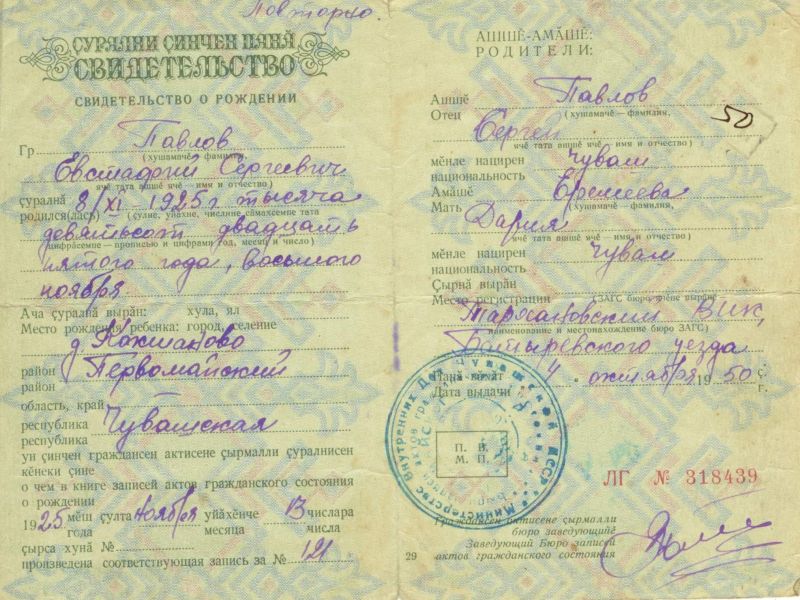 Повторно.
ҪУРАЛНИ ҪИНЧЕН ПАНӐ
СВИДЕТЕЛЬСТВО
СВИДЕТЕЛЬСТВО О РОЖДЕНИИ
Павлов
Гр
(хушамачĕ – фамилия)
Евстафий Сергеевич
ячĕ тата ашшĕ ячĕ – имя и отчество)
ҫуралнӑ 8/XI 1925 г тысяча
родился(лась) (ҫулне, уйӑхне, числине сӑмахсемне тата
девятьсот двадцать
цифрӑсемпе – прописью и цифрами год, месяц и число)
пятого года, восьмого
ноября
Ача ҫуралнӑ вырӑн: хула, ял
Место рождения ребенка: город, селение
д.
район Первомайский
район
область, край
республика Чувашская
республика
ун ҫинчен граждансен актисене ҫырмалли ҫуралнисен
кĕнеки ҫине
о чем в книге записей актов гражданского состояния
о рождении
1925 мĕш ҫулта ноября уйӑхĕнче 13 числара
года месяца числа
ҫырса хунӑ №
произведена соответствующая запись за № 121
АШШĔ-АМӐШĔ:
РОДИТЕЛИ:
Ашшĕ Павлов
Отец (хушамачĕ – фамилия,
50
Сергей
ячĕ тата ашшĕ ячĕ – имя и отчество)
мĕнле нацирен чуваш
национальность
Амӑшĕ Еремеева
Мать (хушамачĕ – фамилия,
Дария
ячĕ тата ашшĕ ячĕ – имя и отчество)
мĕнле нацирен чуваш
национальность
Ҫырнӑ вырӑн
Место регистрации (ЗАГС бюро, мĕнле вырӑнта
ВИК,
наименование и местонахождение бюро ЗАГС)
Батыревского уезда
Панӑ вӑхӑт 4 октября 1950 ҫ.
Дата выдачи г.
Министерство Внутренних Дел Чувашской АССР
П. В.
М. П.
ЛГ № 318439
Граждансен актисене ҫырмалли
бюро заведующийĕ
Заведующий Бюро записей
актов гражданского состояния
29